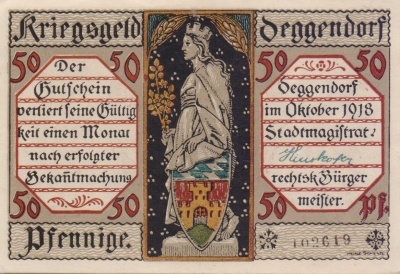 Kriegsgeld Deggendorf
50 50
Der
Gutschein
verliert seine Gültig
keit einen Monat
nach erfolgter
Bekañtmachung
50 50
Pfennige.
50 50
Deggendorf
im Oktober 1918
Stadtmagistrat:
rechtsk. Bürger
meister.
50 Pf.
102619